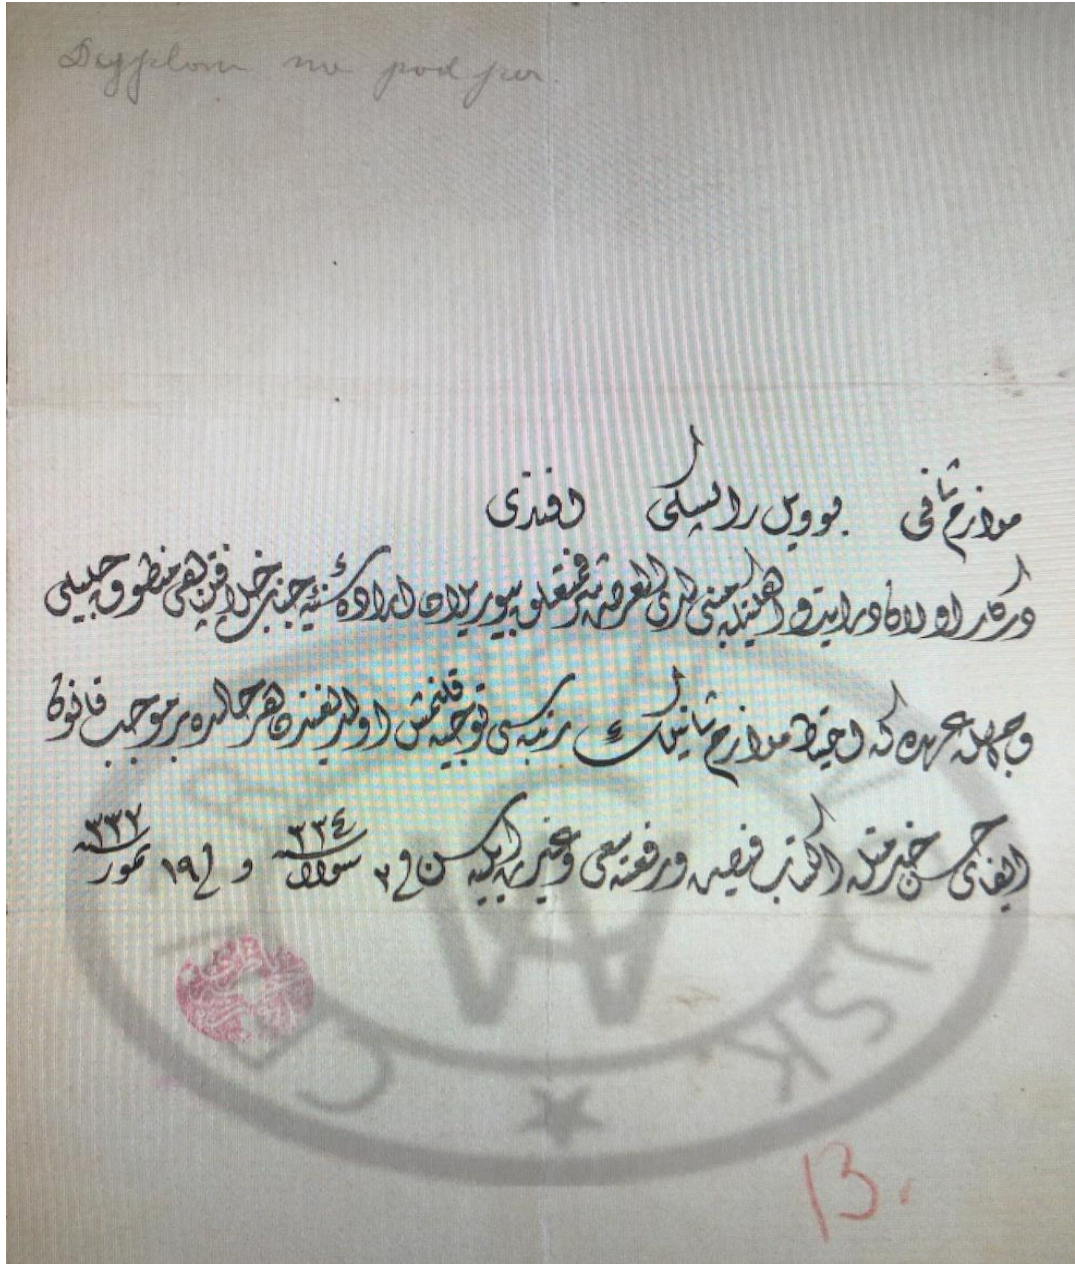 Dyplom na pod por.
ملازم ثانی بوویل رالیسکی افندی
درکار اولان درایت و اهلیتکه مبنی لدی العرض شرفمتعلق بیوریلان ارادهٔ سنیهٔ جناب خلافتپناهی منطوق جلیلی
وجهله عهدهکه احتیاط ملازم ثانیلک رتبه‌سی توجیه قلنمش اولدیغندن هر حالده بر موجب قانون
ایفای حسن خدمتله اکتساب فیض و رفعته سعی و غیرت ایلیه‌سن فی ٣ شوال ٣٣٤ و فی ١٩ تموز ٣٣٢
B.